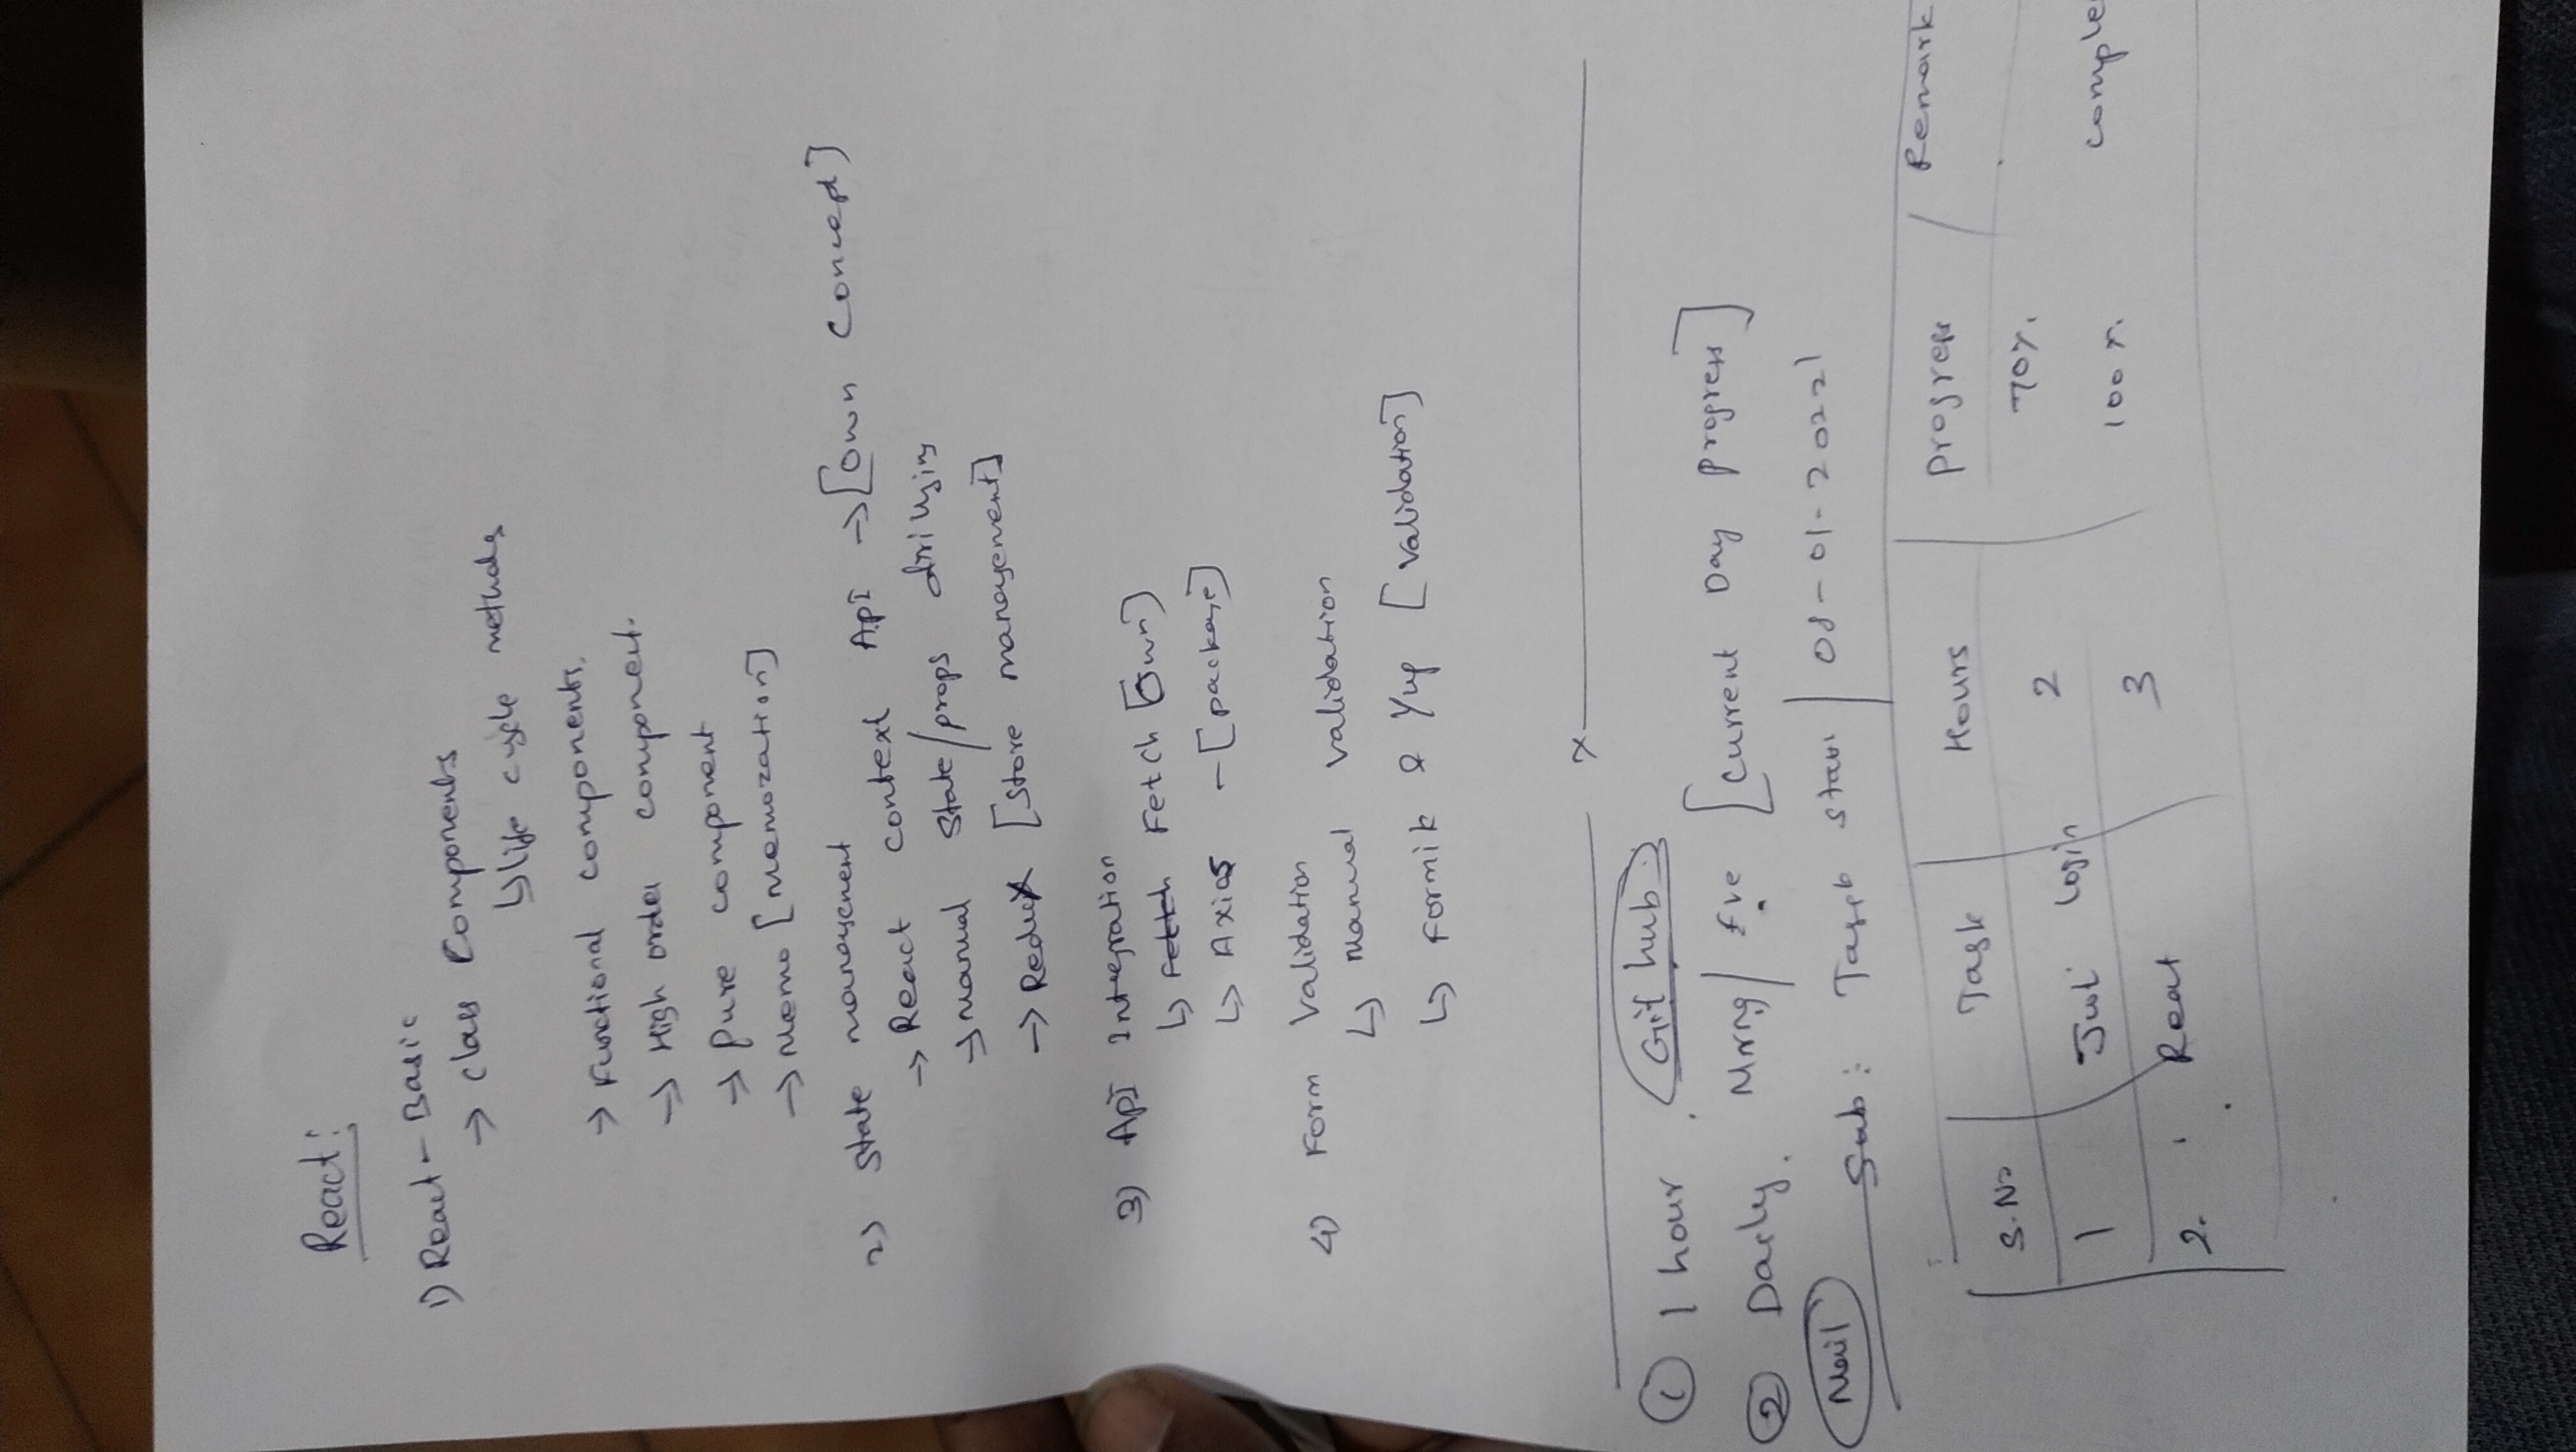 React:
1) React - Basic
→ class Components
↳ life cycle methods
→ Functional components.
→ High order component.
→ Pure component
→ Memo [Memozation]
2) State management
→ React context ApI → [Own Concept]
→ Manual State/props
→ Redux [Store management]
3) ApI Integration
↳ Fetch Fetch [Own]
↳ Axios - [package]
4) Form Validation
↳ Manual validation
↳ Formik & Yup [validation]
x
① 1 hour . Git hub
② Daily. Mrng/ Eve [Current Day progress]
Mail Sub: 08-01-2022
S.No Task Hours Progress Remark
1 Jwt login 2 70%.
2. Reat 3 100%. comple